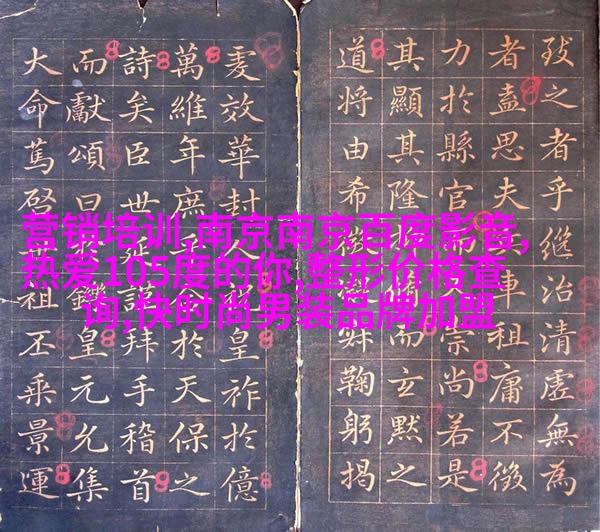 营销培训,南京南京百度影音,
热爱105度的你,整形价格查
询,快时尚男装品牌加盟
致之者乎繼治清虛無為
者盍思夫車祖庸不徵
力於縣官而宗尚若是
其顯其隆而玄默之
道將由希微鞠躬揭
效華封人皇祚於億
萬維年庶於天保之
詩矣臣世謹拜手稽首
而獻頌曰皇元允集
大命篤啓祖丕乘景運